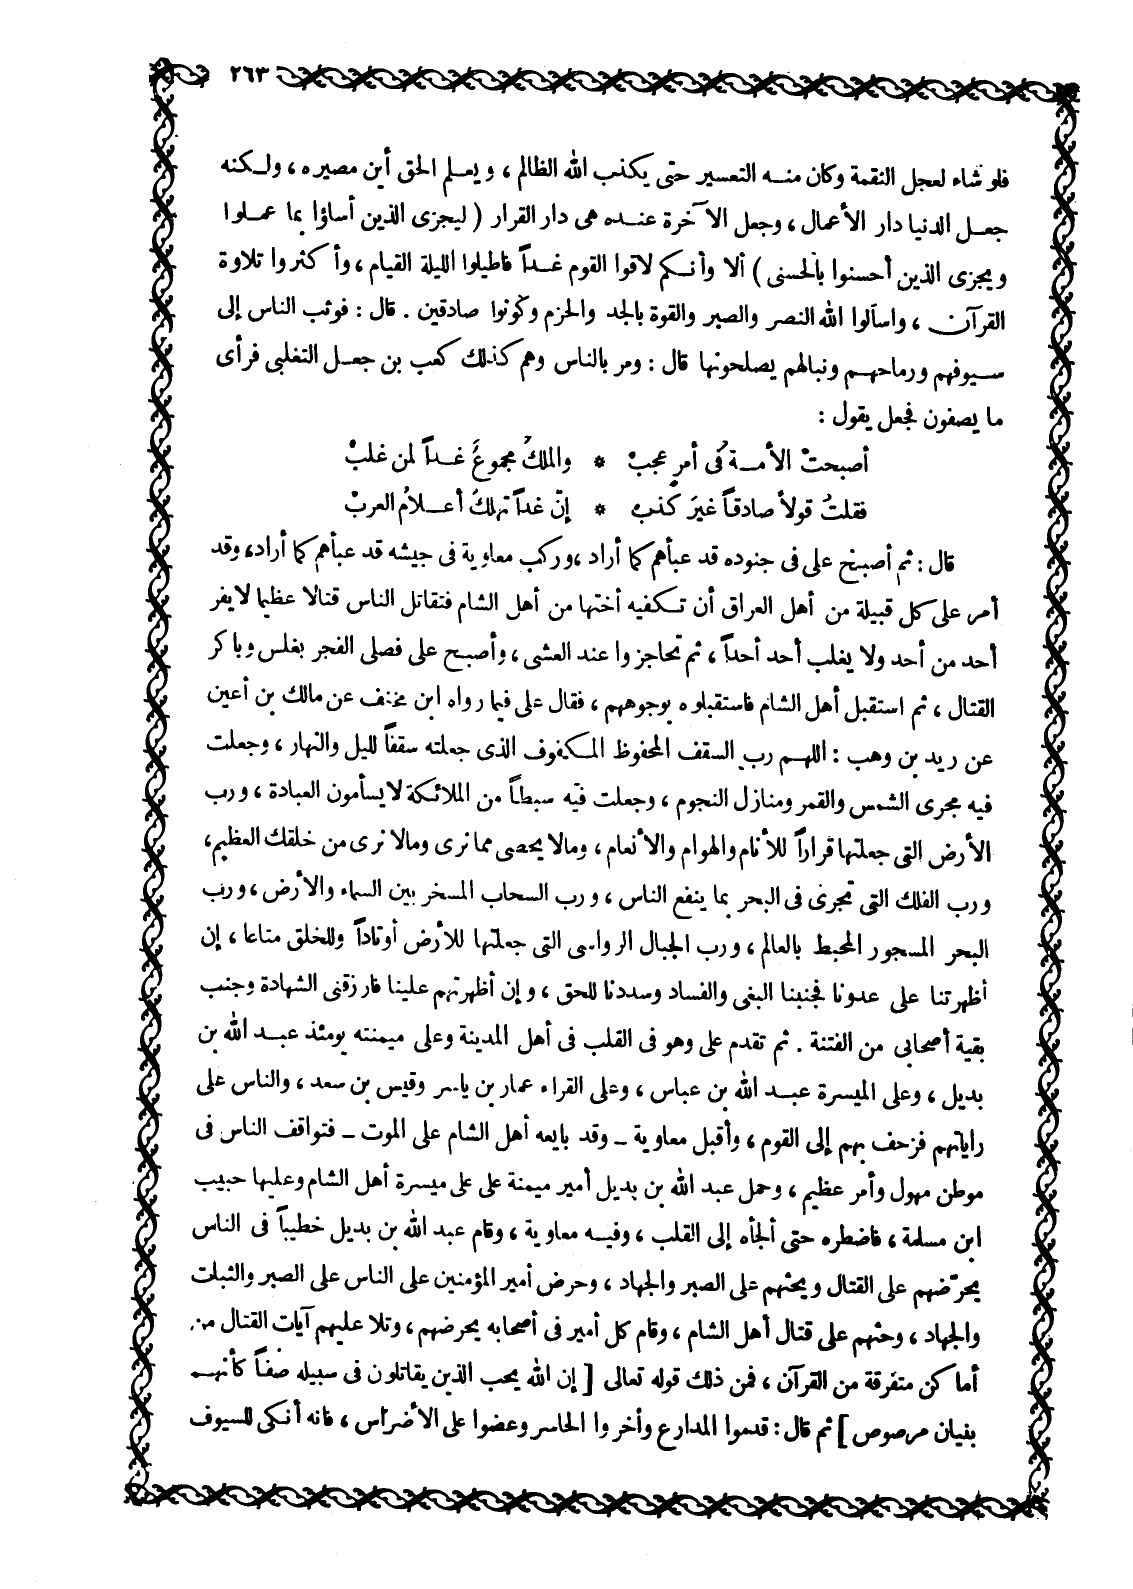 ٢٦٣
فلو شاء لعجل النقمة وكان منه التعسير حتى يكذب الله الظالم ، ويعلم الحق أين مصيره ، ولكنه
جعل الدنيا دار الأعمال ، وجعل الآخرة عنده هى دار القرار ( ليجزى الذين أساؤا بما عملوا
ويجزى الذين أحسنوا بالحسنى ) ألا وأنكم لاقوا القوم غداً فاطيلوا الليلة القيام ، وأكثروا تلاوة
القرآن ، واسألوا الله النصر والصبر والقوة بالجد والحزم وكونوا صادقين . قال : فوثب الناس إلى
سيوفهم ورماحهم ونبالهم يصلحونها قال : ومر بالناس وهم كذلك كعب بن جعل التغلبى فرأى
ما يصفون فجعل يقول :
أصبحتْ الأمةُ فى أمرٍ عجبْ * والملكُ مجموعٌ غداً لمن غلبْ
فقلتُ قولاً صادقاً غيرَ كذبْ * إنّ غداً تهلكُ أعلامُ العربْ
قال : ثم أصبح على فى جنوده قد عبأهم كما أراد ، وركب معاوية فى جيشه قد عبأهم كما أراد ، وقد
أمر على كل قبيلة من أهل العراق أن تكفيه أختها من أهل الشام فتقاتل الناس قتالا عظيما لا يفر
أحد من أحد ولا يغلب أحد أحداً ، ثم تحاجزوا عند العشى ، وأصبح على فصلى الفجر بغلس وباكر
القتال ، ثم استقبل أهل الشام فاستقبلوه بوجوههم ، فقال على فيما رواه ابن مخنف عن مالك بن أعين
عن زيد بن وهب : اللهم رب السقف المحفوظ المكفوف الذى جعلته سقفاً لليل والنهار ، وجعلت
فيه مجرى الشمس والقمر ومنازل النجوم ، وجعلت فيه سبطاً من الملائكة لا يسأمون العبادة ، ورب
الأرض التى جعلتها قراراً للأنام والهوام والأنعام ، ومالا يحصى مما نرى ومالا نرى من خلقك العظيم ،
ورب الفلك التى تجرى فى البحر بما ينفع الناس ، ورب السحاب المسخر بين السماء والأرض ، ورب
البحر المسجور المحيط بالعالم ، ورب الجبال الرواسى التى جعلتها للأرض أوتاداً وللخلق متاعا ، إن
أظهرتنا على عدونا فجنبنا البغى والفساد وسددنا للحق ، وإن أظهرتهم علينا فارزقنى الشهادة وجنب
بقية أصحابى من الفتنة . ثم تقدم على وهو فى القلب فى أهل المدينة وعلى ميمنته يومئذ عبد الله بن
بديل ، وعلى الميسرة عبد الله بن عباس ، وعلى القراء عمار بن ياسر وقيس بن سعد ، والناس على
راياتهم فزحف بهم إلى القوم ، وأقبل معاوية ــ وقد بايعه أهل الشام على الموت ــ فتواقف الناس فى
موطن مهول وأمر عظيم ، وحمل عبد الله بن بديل أمير ميمنة على على ميسرة أهل الشام وعليها حبيب
ابن مسلمة ، فاضطره حتى ألجأه إلى القلب ، وفيه معاوية ، وقام عبد الله بن بديل خطيباً فى الناس
يحرّضهم على القتال ويحثهم على الصبر والجهاد ، وحرض أمير المؤمنين على الناس على الصبر والثبات
والجهاد ، وحثهم على قتال أهل الشام ، وقام كل أمير فى أصحابه يحرضهم ، وتلا عليهم آيات القتال من
أماكن متفرقة من القرآن ، فمن ذلك قوله تعالى [ إن الله يحب الذين يقاتلون فى سبيله صفاً كأنهم
بنيان مرصوص ] ثم قال : قدموا المدارع وأخروا الحاسر وعضوا على الأضراس ، فانه أنكى للسيوف